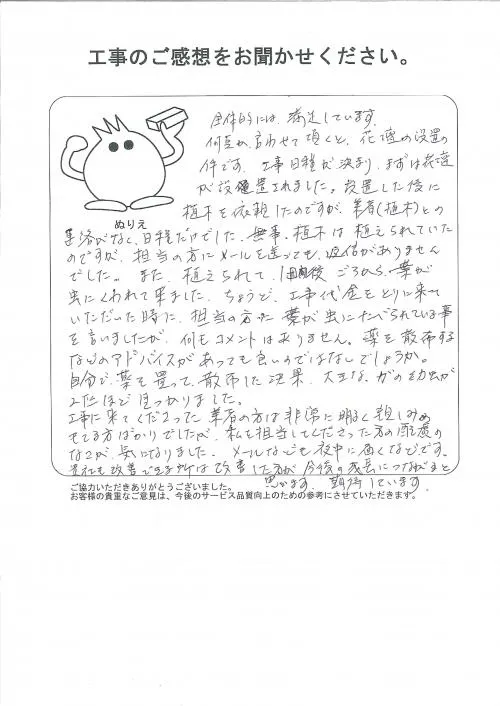 工事のご感想をお聞かせください。
全体的には、満足しています。
何点か、言わせて頂くと、花壇の設置の
件です。工事日程が決まり、まずは花壇
が設置されました。設置した後に
植木を依頼したのですが、業者(植木)との
ぬりえ
連絡がなく、日程だけでした。無事、植木は植えられていた
のですが、担当の方にメールを送っても、返信がありません
でした。また、植えられて、1週間後ごろから、葉が
虫にくわれて来ました。ちょうど、工事代金をとりに来て
いただいた時に、担当の方に葉が虫にたべられている事
を言いましたが、何もコメントはありません。薬を散布する
などのアドバイスがあっても良いのではないでしょうか。
自分で、薬を買って、散布した結果、大きな、がの幼虫が
2匹ほど見つかりました。
工事に来てくださった業者の方は非常に明るく親しみめ
もてる方ばかりでしたが、私を担当してくださった方の配慮の
なさが、気になりました。メールなども夜中に届くなどです。
是非も改善できる所は改善した方が今後の成長につながると
思います。期待しています。
ご協力いただきありがとうございました。
お客様の貴重なご意見は、今後のサービス品質向上のための参考にさせていただきます。